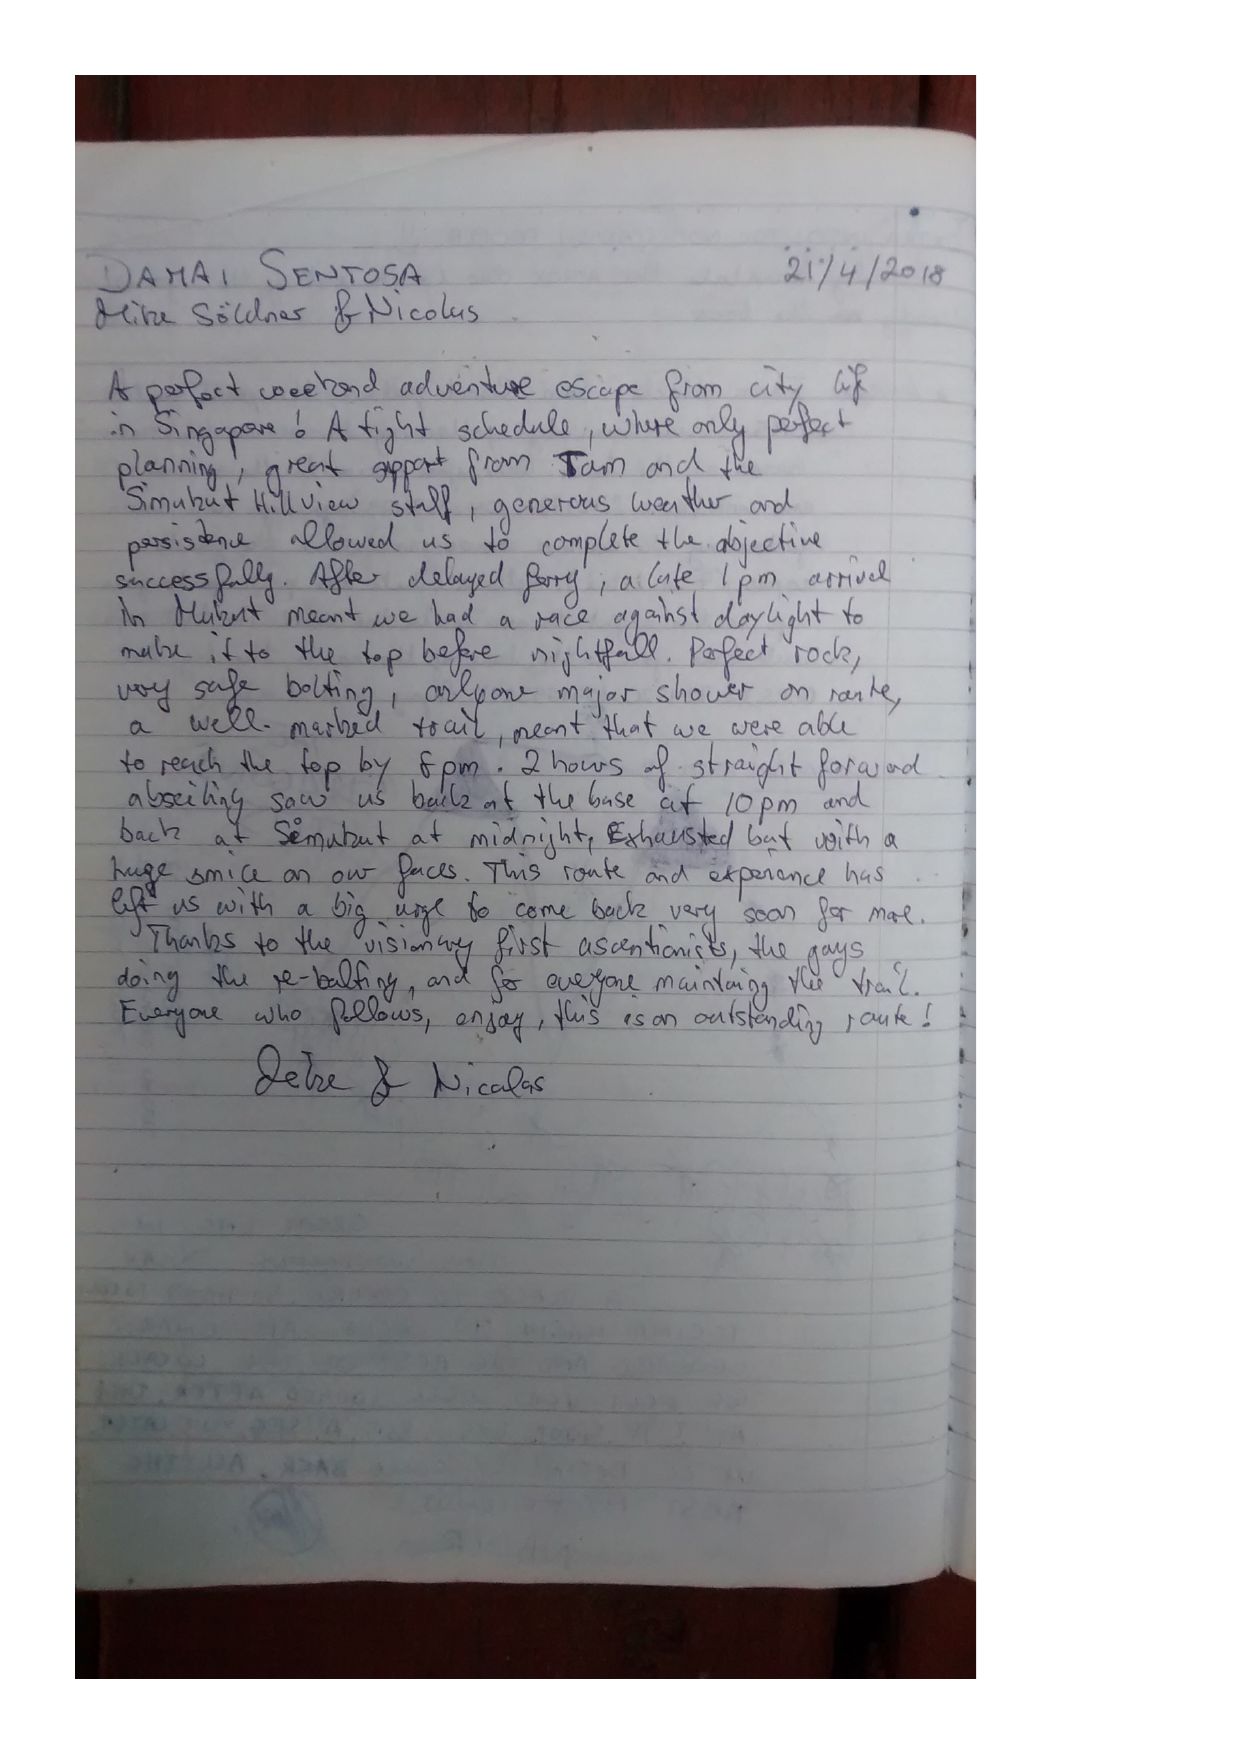 DAMAI SENTOSA 21/4/2018
Mike Söldner & Nicolas
A perfect weekend adventure escape from city life
in Singapore! A tight schedule, where only perfect
planning, great support from Tam and the
Simukut Hillview staff, generous weather and
persistence allowed us to complete the objective
successfully. After delayed ferry, a late 1pm arrival
in Mukut meant we had a race against daylight to
make it to the top before nightfall. Perfect rock,
very safe bolting, only one major shower on route,
a well-marked trail, meant that we were able
to reach the top by 8pm. 2 hours of straight forward
abseiling saw us back at the base at 10pm and
back at Simukut at midnight, Exhausted but with a
huge smile on our faces. This route and experience has
left us with a big urge to come back very soon for more.
Thanks to the visionary first ascentionists, the guys
doing the re-bolting, and for everyone maintaing the trail.
Everyone who follows, enjoy, this is an outstanding route!
& Nicolas